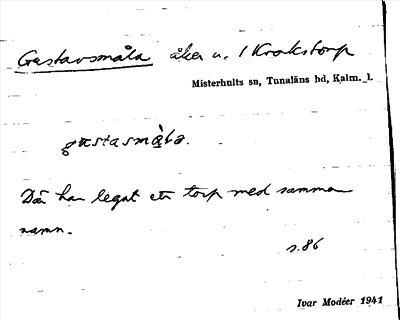 Gustavsmåla åker u. 1 Krokstorp
Misterhults sn, Tunaläns hd, Kalm. l.
gustasmå̀la.
Där har legat ett torp med samma
namn.
s. 86
Ivar Modéer 1941